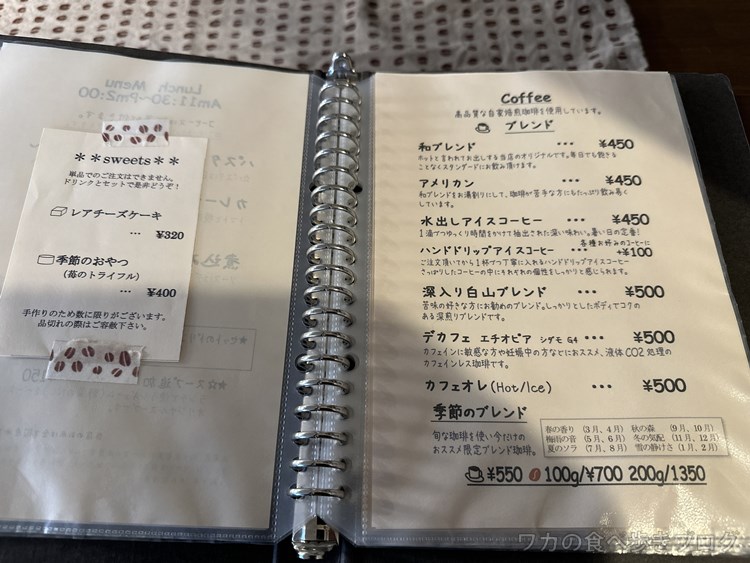 Lunch Menu
Am11:30~Pm2:00
**sweets**
単品でのご注文はできません。
ドリンクとセットで是非どうぞ!
レアチーズケーキ
… ¥320
季節のおやつ
(苺のトライフル)
… ¥400
手作りのため数に限りがございます。
品切れの際はご容赦下さい。
Coffee
高品質な自家焙煎珈琲を使用しています。
ブレンド
和ブレンド … ¥450
ホットと言われてお出しする当店のオリジナルです。毎日でも飽きる
ことなくスタンダードにお飲み頂けます。
アメリカン … ¥450
和ブレンドをお湯割りにして、珈琲が苦手な方にもたっぷり飲み易く
しています。
水出しアイスコーヒー … ¥450
1滴づつゆっくり時間をかけて抽出された深い味わい。暑い日の定番!
各種お好みのコーヒーに
ハンドドリップアイスコーヒー … +¥100
ご注文頂いてから1杯づつ丁寧に入れるハンドドリップアイスコーヒー
さっぱりしたコーヒーの中にそれぞれの個性をしっかりと感じられます。
深入り白山ブレンド … ¥500
苦味の好きな方にお勧めのブレンド。しっかりとしたボディでコク
のある深煎りブレンドです。
デカフェ エチオピア シダモ G4 … ¥500
カフェインに敏感な方や妊娠中の方などにおススメ、液体CO2処理の
カフェインレス珈琲です。
カフェオレ(Hot/Ice) … ¥500
季節のブレンド
旬な珈琲を使い今だけの
おススメ限定ブレンド珈琲。
春の香り (3月、4月) 秋の森 (9月、10月)
梅雨の音 (5月、6月) 冬の気配 (11月、12月)
夏のソラ (7月、8月) 雪の静けさ (1月、2月)
¥550 100g/¥700 200g/1350
ワカの食べ歩きブログ